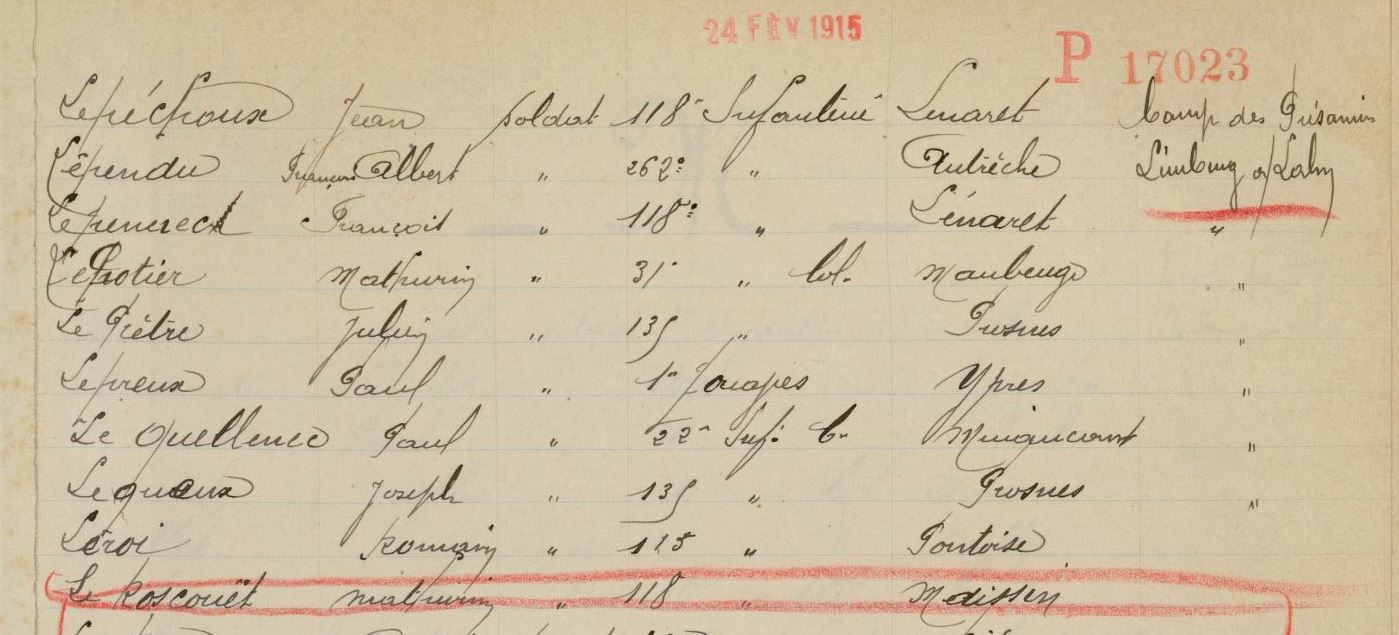 24 FÉV 1915
P 17023
Lepéchoux Jean soldat 118e Infanterie Lenaret Camp des Prisonniers
Lépendu François Albert " 262e " Autrêche Limburg a/Lahn
Lepenneck François " 118e " Lénaret "
Le Potier Mathurin 31e " Col. Maubeuge "
Le Prêtre Julien " 135 " Prosnes "
Lepreux Paul " 1er Zouaves Ypres "
Le Quellenec Paul " 22e Inf. C. "
Lequeux Joseph " 135 " Prosnes "
Léroi Romain " 125 " Pontoise
Le Roscouët Mathurin " 118 " Maissin